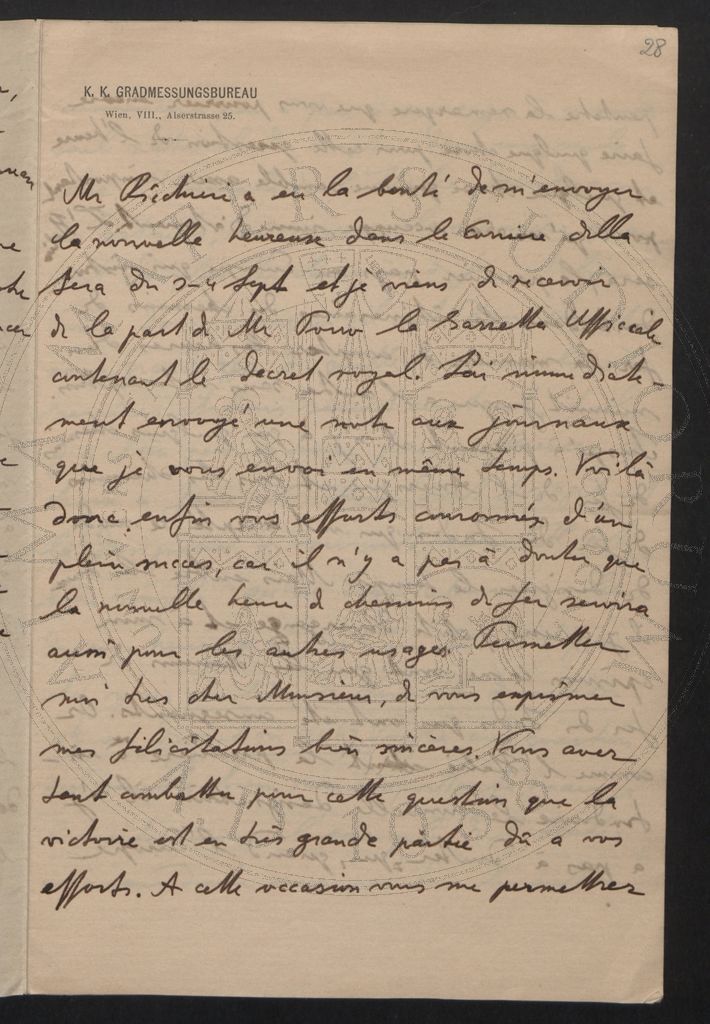 28
K. K. GRADMESSUNGSBUREAU
Wien, VIII., Alserstrasse 25.
Mr a eu la bonté de m'envoyer
la nouvelle heureuse dans le Corriere della
Sera du 3-4 Sept et je viens de recevoir
de la part de Mr la Gazzetta Ufficiale
contenant le Decret royal. J'ai immediate-
ment envoyé une note aux journaux
que je vous envoi en même temps. Voilà
donc enfin vos efforts couronnés d'un
plein succes, car il n'y a pas à douter que
la nouvelle heure de chemins de fer servira
aussi pour les autres usages. Permettez
moi tres cher Monsieur, de vous exprimer
mes félicitations bien sincères. Vous avez
tant combattu pour cette question que la
victoire est en très grande partie dû a vos
efforts. A cette occasion vous me permettrez